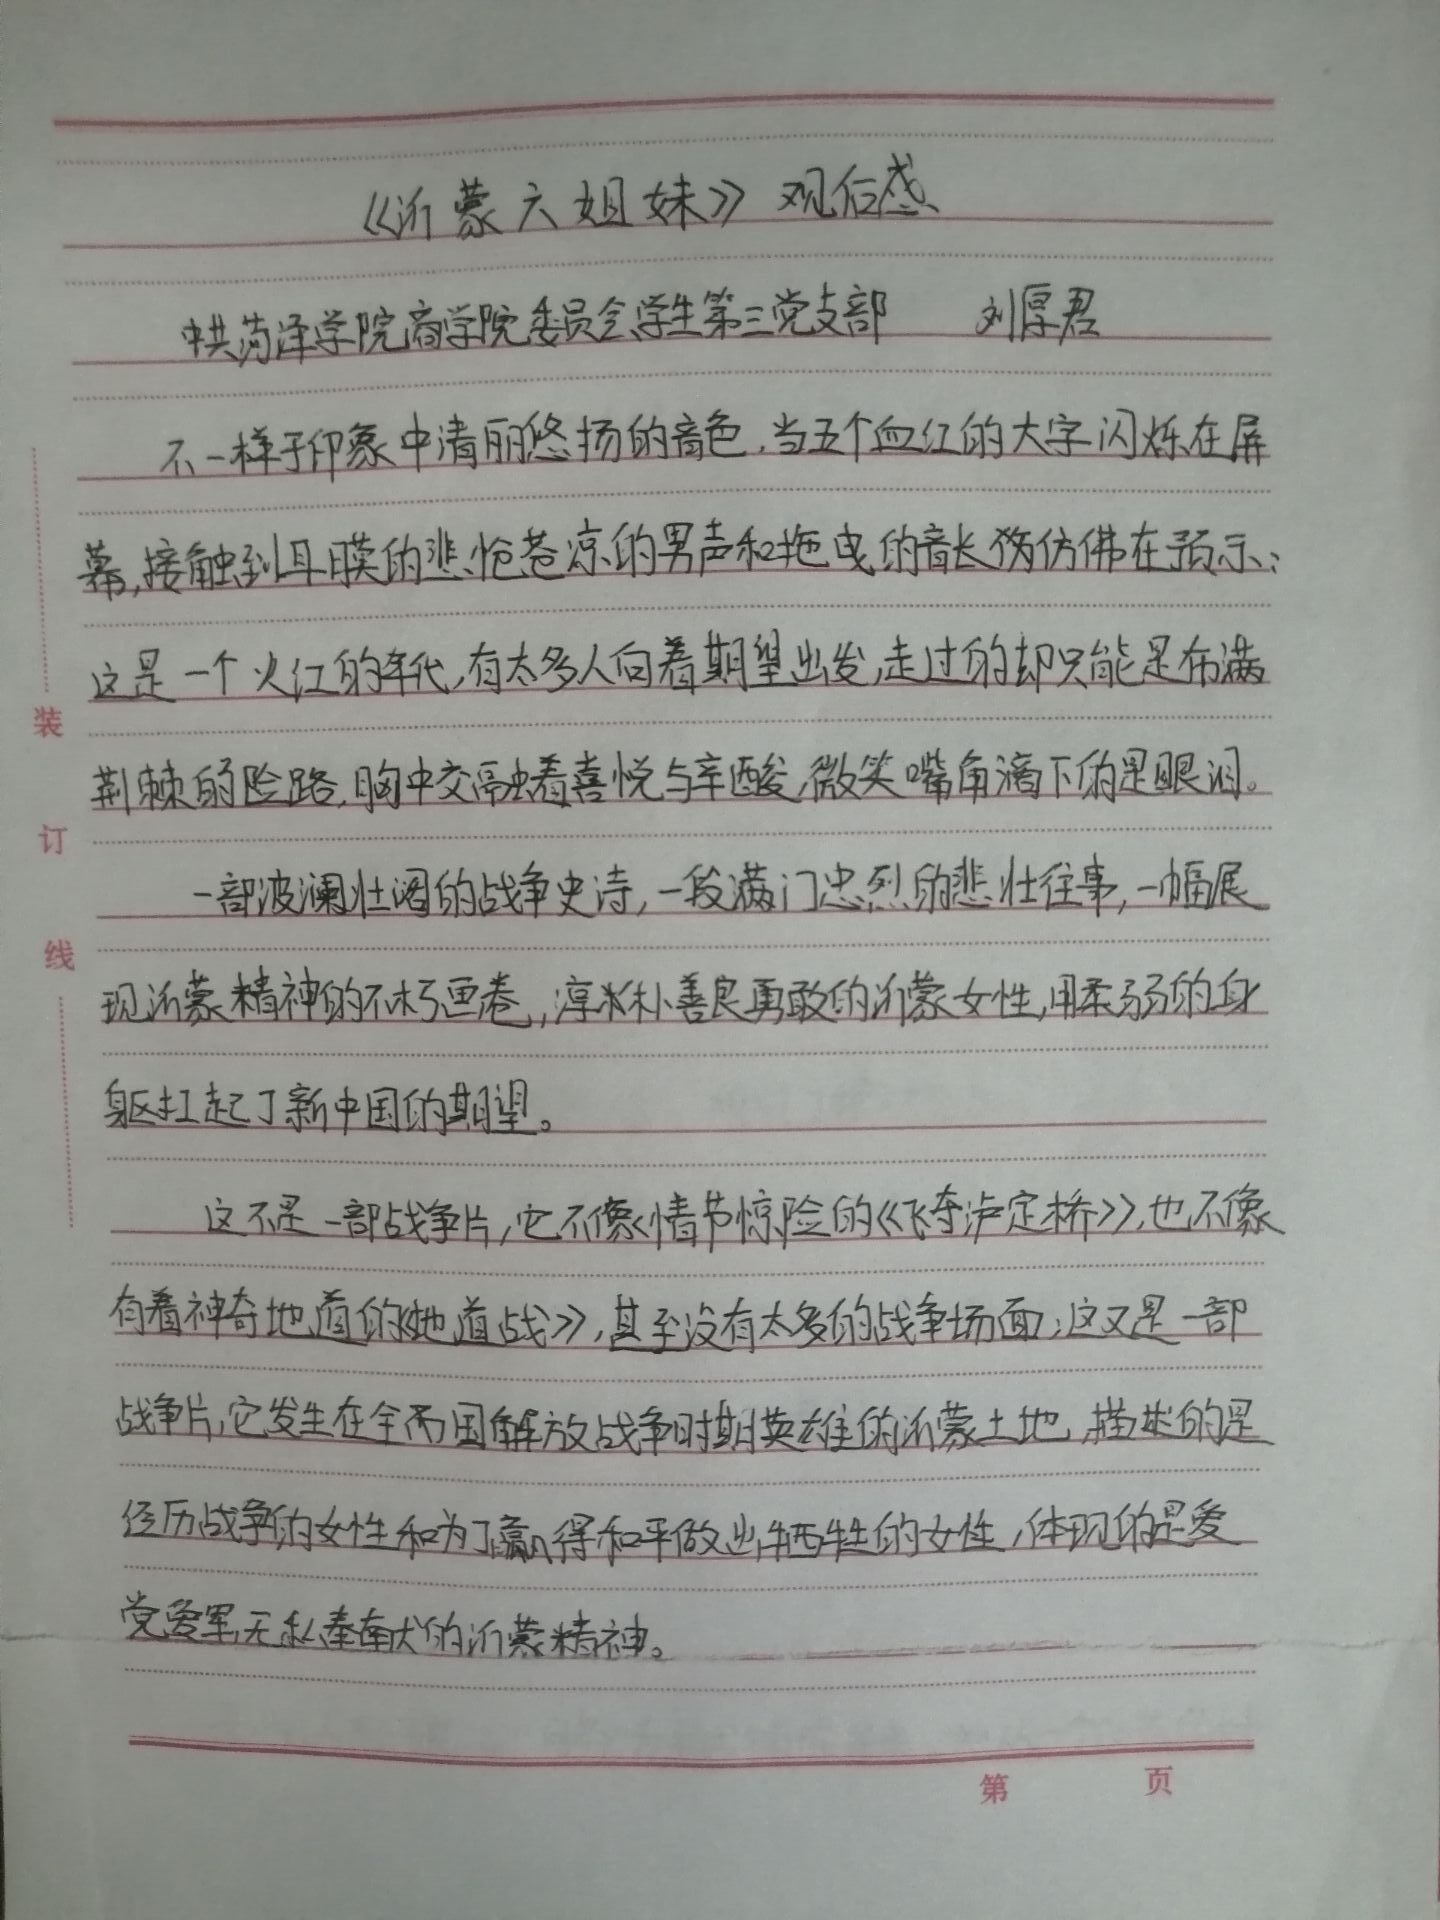 《沂蒙六姐妹》观后感
中共菏泽学院商学院委员会学生第三党支部 刘厚君
不一样于印象中清丽悠扬的音色,当五个血红的大字闪烁在屏
幕,接触到耳膜的悲怆苍凉的男声和拖曳的音长仿佛在预示:
这是一个火红的年代,有太多人向着期望出发,走过的却只能是布满
荆棘的险路,胸中交融着喜悦与辛酸,微笑嘴角滴下的是眼泪。
一部波澜壮阔的战争史诗,一段满门忠烈的悲壮往事,一幅展
现沂蒙精神的不朽画卷,淳朴善良勇敢的沂蒙女性,用柔弱的身
躯扛起了新中国的期望。
这不是一部战争片,它不像情节惊险的《飞夺泸定桥》,也不像
有着神奇地道的《地道战》,甚至没有太多的战争场面;这又是一部
战争片,它发生在全而国解放战争时期英雄的沂蒙土地,描述的是
经历战争的女性和为了赢得和平做出牺牲的女性,体现的是爱
党爱军,无私奉献的沂蒙精神。
装
订
线
第 页